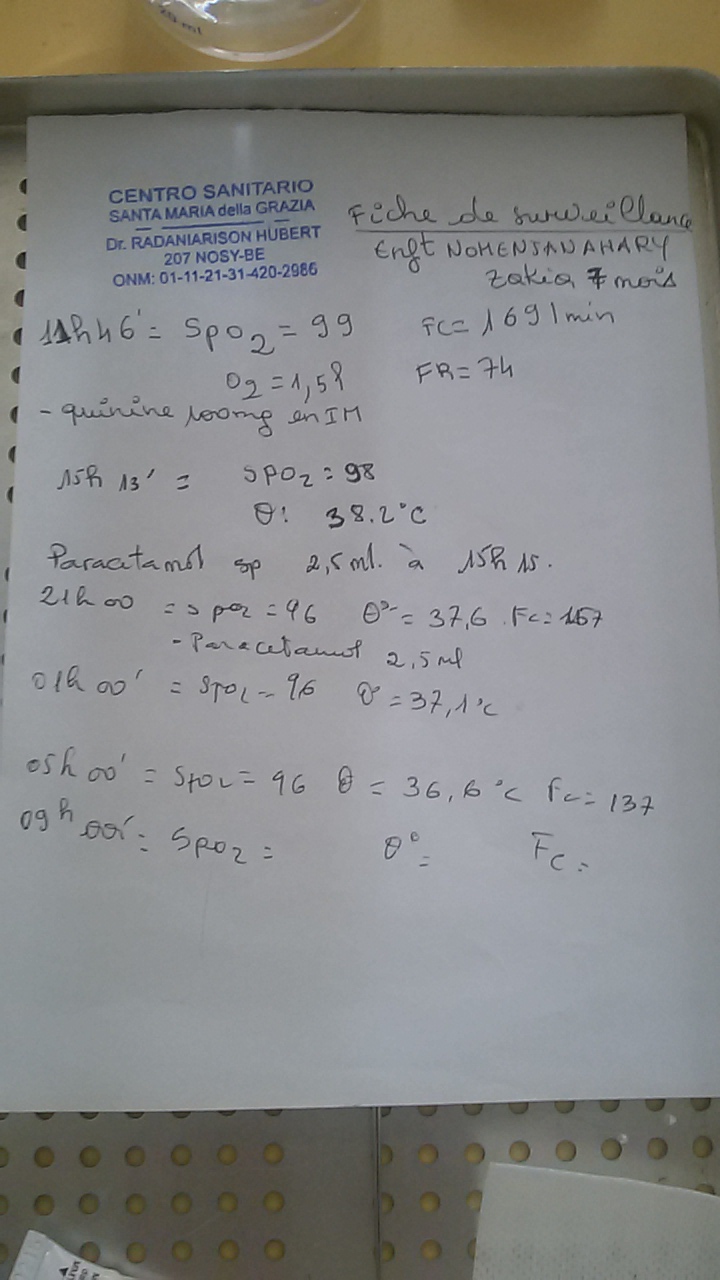 20 ml
CENTRO SANITARIO
SANTA MARIA della GRAZIA
Dr. RADANIARISON HUBERT
207 NOSY-BE
ONM: 01-11-21-31-420-2986
Fiche de surveillance
Enft NOMENJANAHARY
Zakia 7 mois
11h46' = SpO2 = 99 FC = 169/min
O2 = 1,5l FR = 74
- quinine 100mg en IM
15h 13' = SPO2 = 98
θ: 38.2°C
Paracetamol sp 2,5ml. à 15h15.
21h00 = spo2 = 96 θ° = 37,6. Fc = 157
- Paracetamol 2,5ml
01h00' = SpO2 = 96 θ° = 37,1°c
05h00' = SpO2 = 96 θ = 36,6°c Fc = 137
09h00' = SpO2 = θ° = Fc =